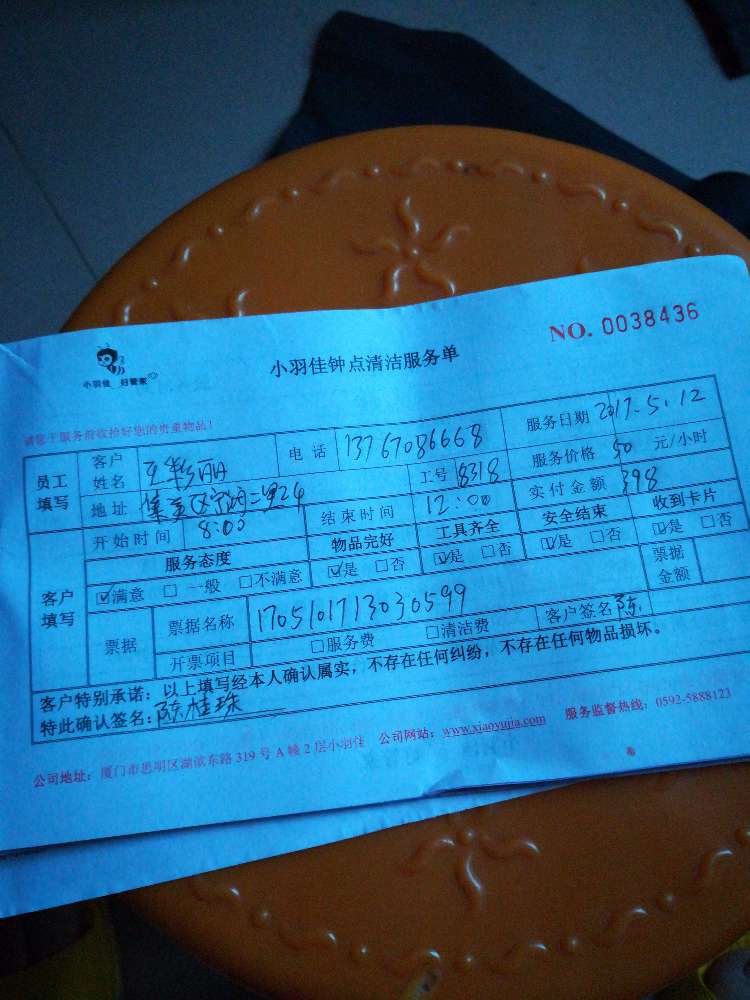 NO. 0038436
小羽佳 好管家
小羽佳钟点清洁服务单
请您于服务前收拾好您的贵重物品！
员工填写 客户姓名 王彩丽 电话 13767086668 服务日期 2017.5.12
地址 集美区宁湖二里24 工号 8318 服务价格 50 元/小时
客户填写 开始时间 8:00 结束时间 12:00 实付金额 398
服务态度 物品完好 工具齐全 安全结束 收到卡片
☑满意 □一般 □不满意 ☑是 □否 ☑是 □否 ☑是 □否 ☑是 □否
票据 票据名称 1705101713030599 客户签名 陈 票据金额
开票项目 □服务费 □清洁费
客户特别承诺：以上填写经本人确认属实，不存在任何纠纷，不存在任何物品损坏。
特此确认签名：陈桂珠
公司地址：厦门市思明区湖滨东路 319 号 A 幢 2 层小羽佳 公司网站：www.xiaoyujia.com 服务监督热线：0592-5888123